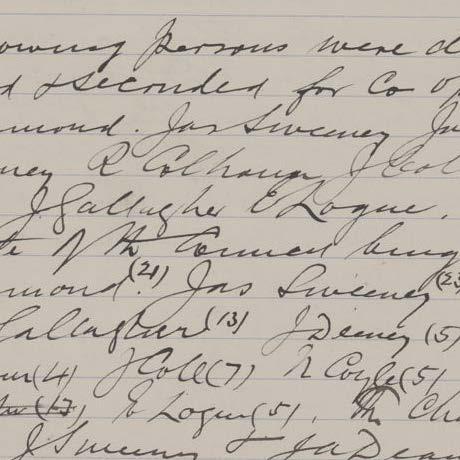 owing persons were d
d & seconded for Co op
mond. Jas Sweeney Ja
ney R Colhoun J Col
J. Gallagher E Logue.
te of the Council being
mond (21). Jas Sweeney (23
Gallagher (13) J Deeney (5)
our (4) J Coll (7) N Coyle (5)
(17) E Logue (5). The Cha
J Sweeney & J A Dean